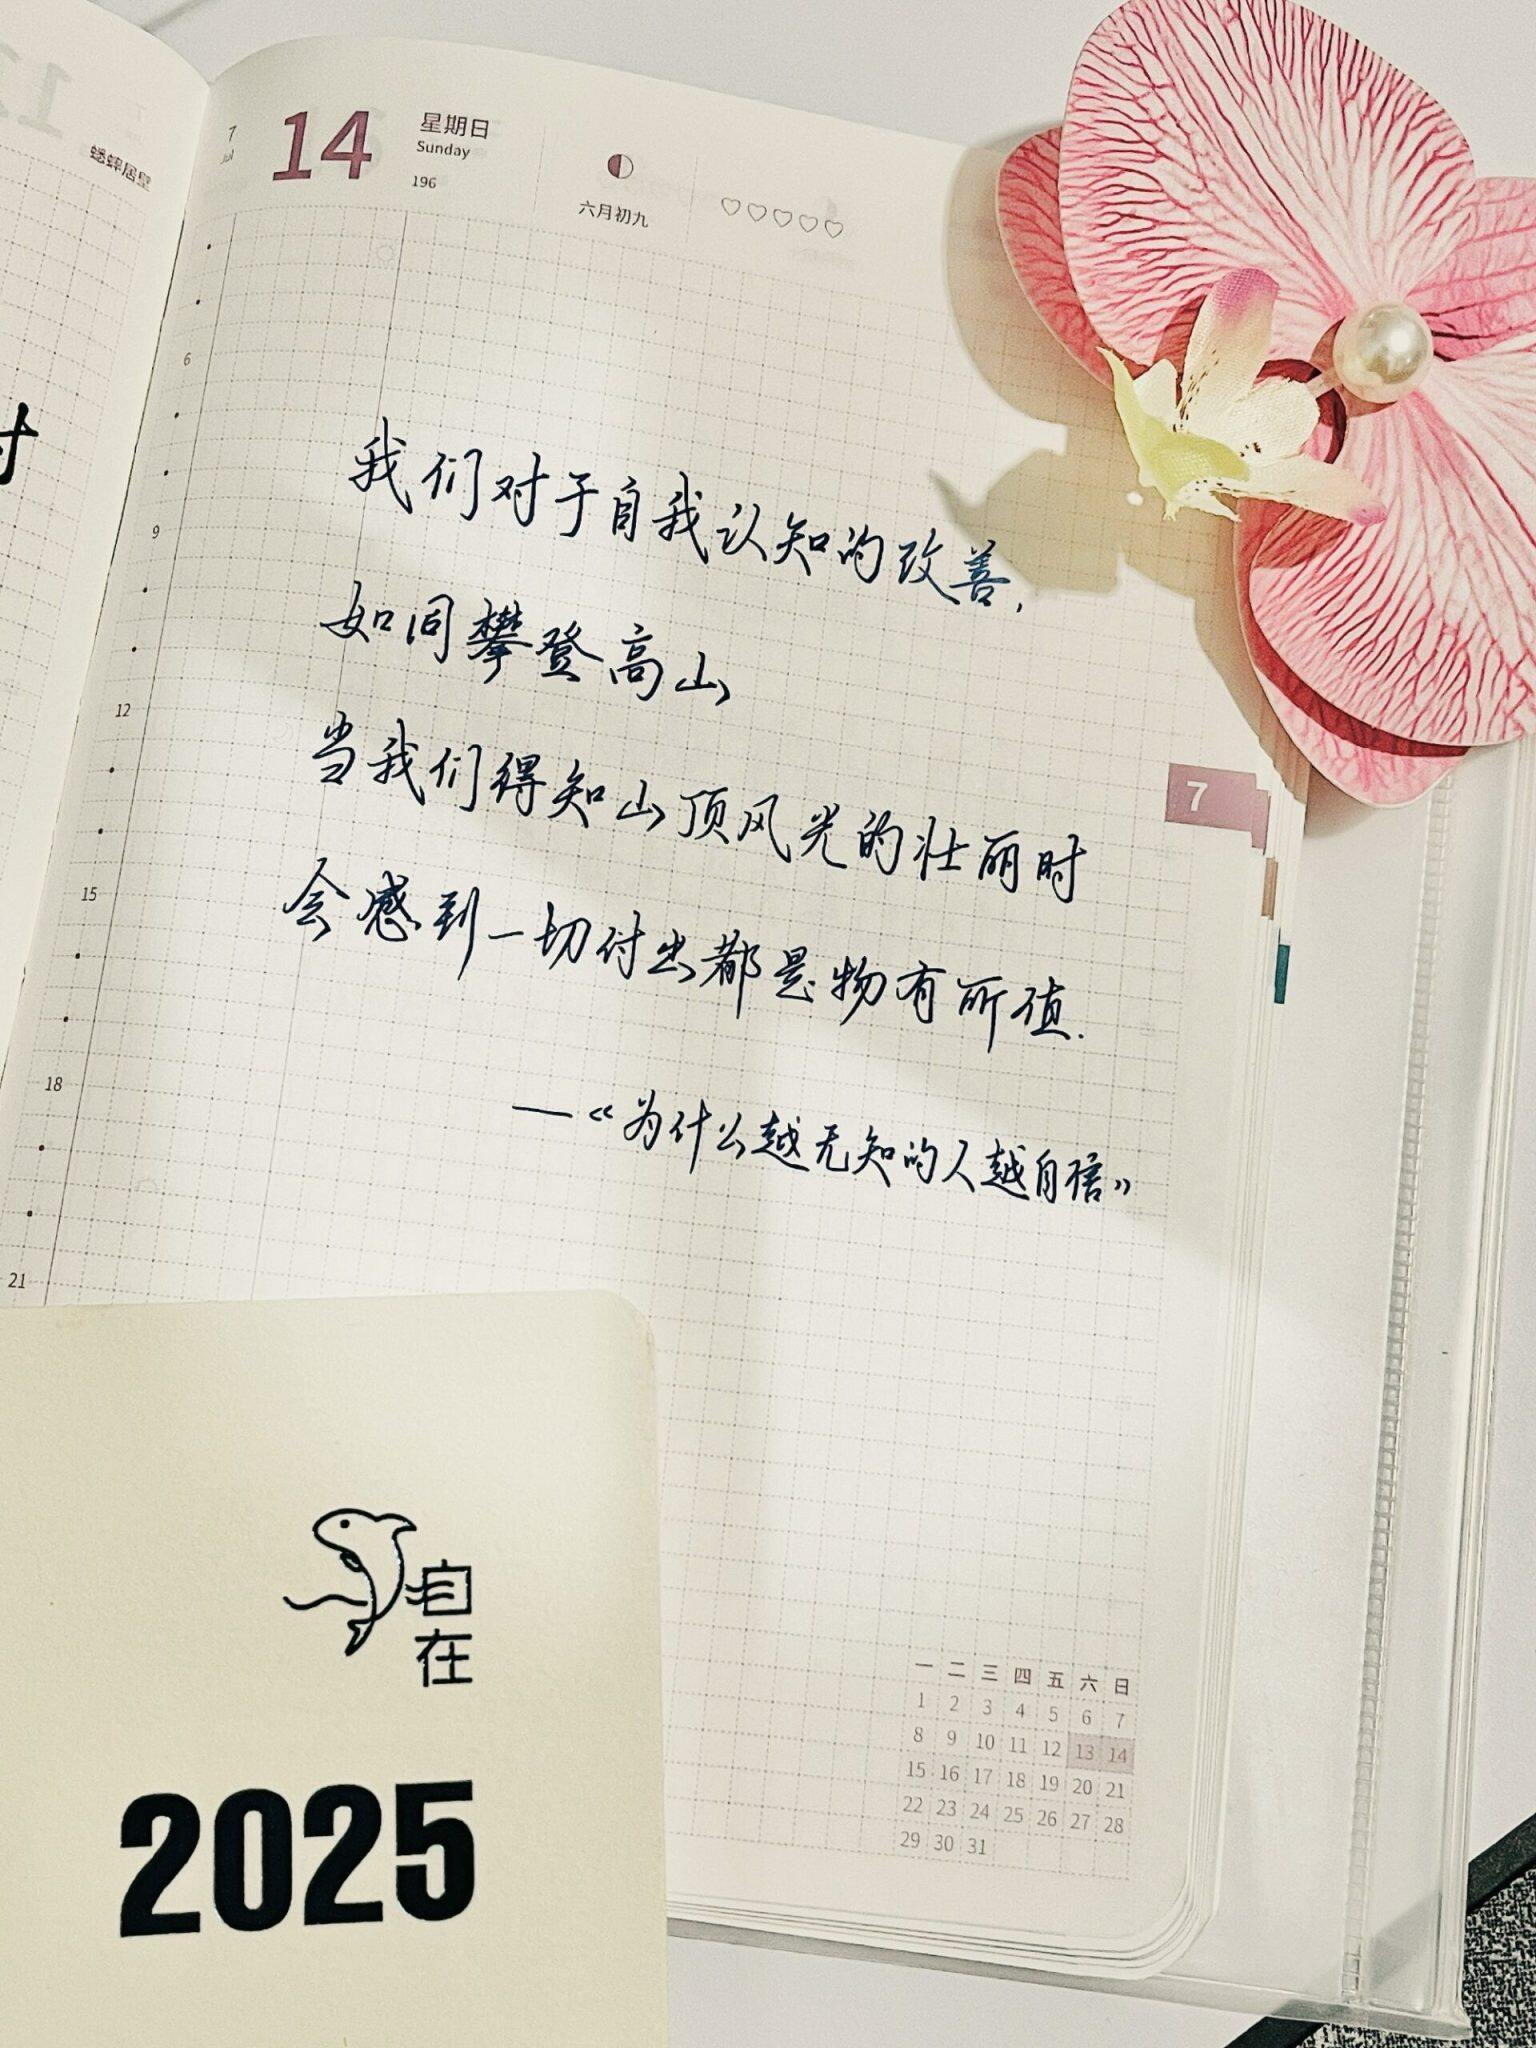 蟋蟀居壁
7
Jul
14
星期日
Sunday
196
六月初九
6
9
12
15
18
21
我们对于自我认知的改善,
如同攀登高山
当我们得知山顶风光的壮丽时
会感到一切付出都是物有所值.
—《为什么越无知的人越自信》
7
自在
2025
一 二 三 四 五 六 日
1 2 3 4 5 6 7
8 9 10 11 12 13 14
15 16 17 18 19 20 21
22 23 24 25 26 27 28
29 30 31